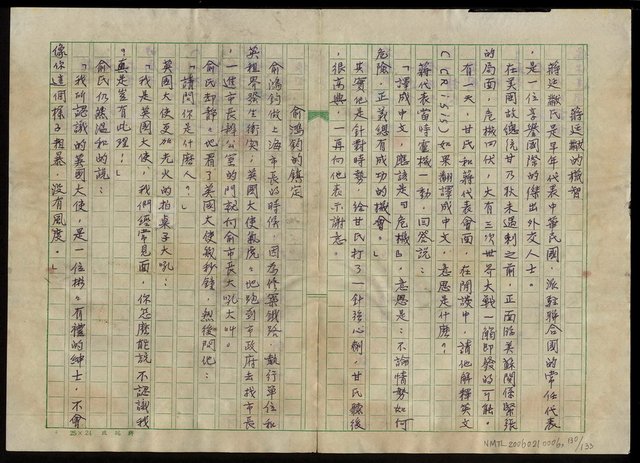 蔣廷黻的機智
蔣廷黻氏是早年代表中華民國，派駐聯合國的常任代表
，是一位享譽國際的傑出外交人士。
在美國故總統甘乃狄未遇刺之前，正面臨美蘇關係緊張
的局面，危機四伏，大有三次世界大戰一觸即發的可能。
有一天，甘氏和蔣代表會面，在閒談中，請他解釋英文
（CRiSiS）如果翻譯成中文，意思是什麼？
蔣代表當時靈機一動，回答說：
「譯成中文，應該是『危機』，意思是：不論情勢如何
危險，正義總有成功的機會。」
其實他是針對時勢，給甘氏打了一針強心劑，甘氏聽後
很高興，一再向他表示謝意。
俞鴻鈞的鎮定
俞鴻鈞做上海市長的時候，因為修築鐵路，執行單位和
英租界發生衝突，英國大使氣虎虎地跑到市政府去找市長
，一進市長辦公室的門就向俞市長大吼大叫。
俞氏却靜靜地看了英國大使幾秒鐘，然後問他：
「請問你是什麼人？」
英國大使更加光火的拍桌子大吼：
「我是英國大使，我們經常見面，你怎麼能說不認識我
？真是豈有此理！」
俞氏仍然溫和的說：
「我所認識的英國大使，是一位彬彬有禮的紳士，不會
像你這個樣子粗暴，沒有風度。」
25×24
NMTL20060210006, 130/133